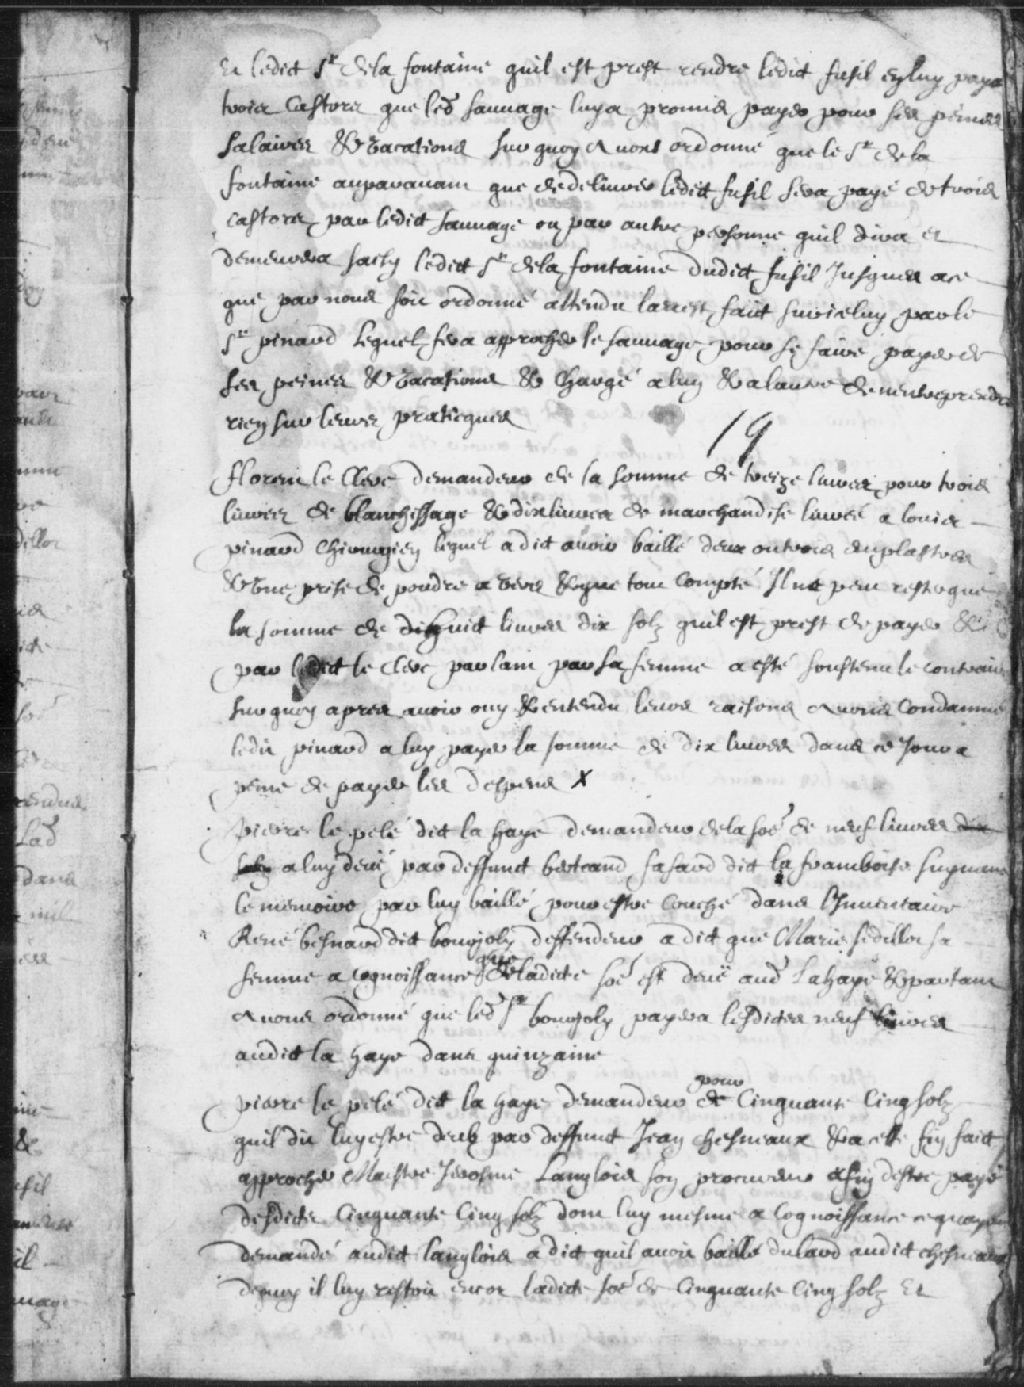 Et ledict Sr dela fontaine quil est prest rendre ledict fusil en luy paya
trois Castors que led sauvage luy a promis payer pour ses peines
salaires & vacations sur quoy avons ordonne que le Sr de la
fontaine auparavant que de delivrer ledict fusil sera payé de trois
castors par ledict sauvage ou par autre personne quil dira et
demeurera saisy ledict Sr dela fontaine dudict fusil Jusques a ce
que par nous soit ordonné attendu larrest faict sur iceluy par le
Sr pinard Lequel fera approcher le sauvage pour se faire payer de
ses peines & vacations & chargé a luy & a lautre de nentreprendre
rien sur leurs praticques
19
florent le Clerc demandeur de la somme de treize livres pour trois
livres de blanchissage & dix livres de marchandise livré a louis
pinard Chirurgien lequel a dict avoir baillé deux ou trois emplastres
& une prise de poudre a vers & que tout compté Il ne peut rester que
la somme de dixhuit livres dix solz quil est prest de payer &
par ledict le Clerc parlant par sa femme a esté soustenu le contraire
sur quoy apres avoir ouy & entendu leurs raisons avons Condamné
ledit pinard a luy payer la somme de dix livres dans ce Jour a
peine de payer les despens X
pierre le pelé dit la haye demandeur dela soē de neuf livres dix
solz a luy deuë par deffunct bertrand fafard dit la framboise suyvant
le memoire par luy baillé pour estre Couché dans l'Inventaire
René besnard dit bourjoly deffendeur a dict que Marie sedillot sa
femme a cognoissance que ladicte soē est deuë aud Lahaye & partant
avons ordonné que led Sr bourjoly payera lesdictes neuf livres
audict la haye dans quinzaine
pierre le pelé dit la haye demandeur de pour Cinquante Cinq solz
quil dit luy estre deub par deffunct Jean Chesneaux & a cette fin faict
approcher Maistre Jerosme Langlois son procureur afin destre payé
desdictes Cinquante Cinq solz dont luy mesme a Cognoissance ce quayant
demandé audict langlois a dict quil avoit baillé du lard audict chesneaux
dequoy il luy restoit encor ladicte soē de Cinquante Cinq solz Et